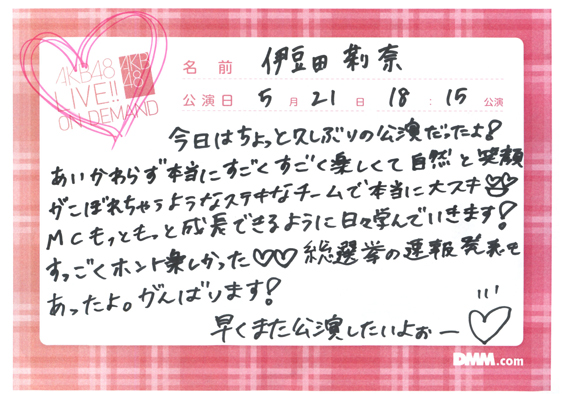 AKB48
LIVE!!
ON DEMAND
AKB
48
名前 伊豆田 莉奈
公演日 5月21日 18:15公演
今日はちょっと久しぶりの公演だったよ!
あいかわらず本当にすごくすごく楽しくて自然と笑顔
がこぼれちゃうようなステキなチームで本当に大スキ
MCもっともっと成長できるように日々学んでいきます!
すっごくホント楽しかった♡♡ 総選挙の速報発表も
あったよ。がんばります!
早くまた公演したいよぉー♡
DMM.com